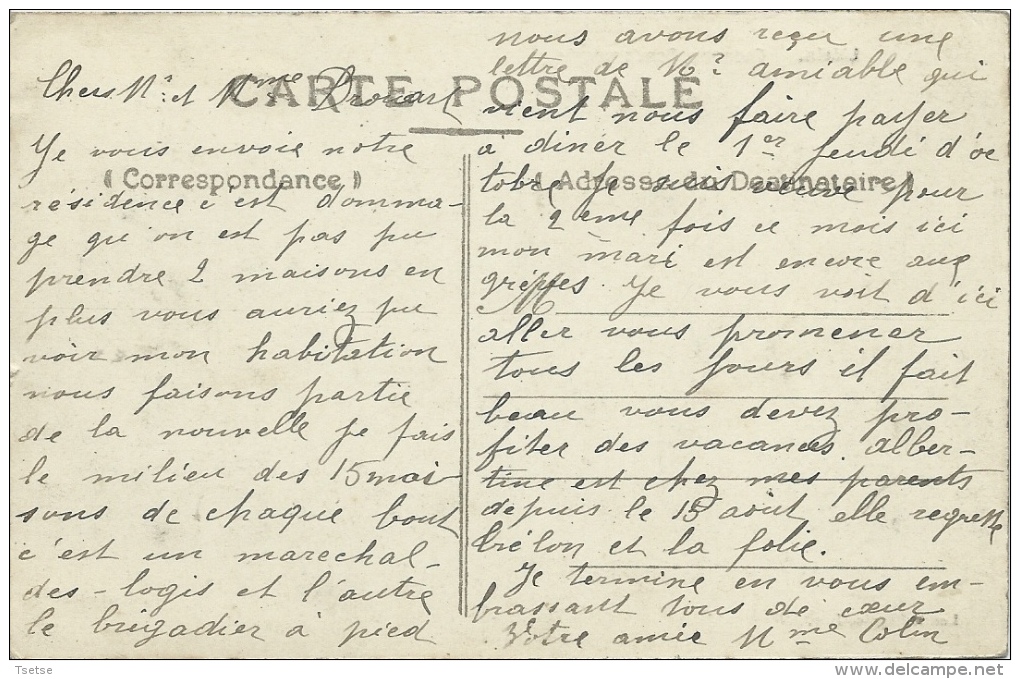 CARTE POSTALE
( Correspondance )
( Adresse du Destinataire )
Chers Mr et Mme Drouart
Je vous envoie notre
résidence c'est domma-
ge qu'on est pas pu
prendre 2 maisons en
plus vous auriez pu
voir mon habitation
nous faisons partie
de la nouvelle je fais
le milieu des 15 mai-
sons de chaque bout
c'est un marechal-
des-logis et l'autre
le brigadier à pied
nous avons reçu une
lettre de Mr amiable qui
vient nous faire payer
à diner le 1er jeudi d'oc
tobre je suis pour
la 2eme fois ce mois ici
mon mari est encore aux
greffes. Je vous voit d'ici
M
aller vous promener
tous les jours il fait
beau vous devez pro-
fiter des vacances. alber-
tine est chez mes parents
depuis le 15 aout elle regrette
Crélon et la folie.
Je termine en vous em-
brassant tous de cœur
Votre amie Mme Colin
Tsetse
www.delcampe.net